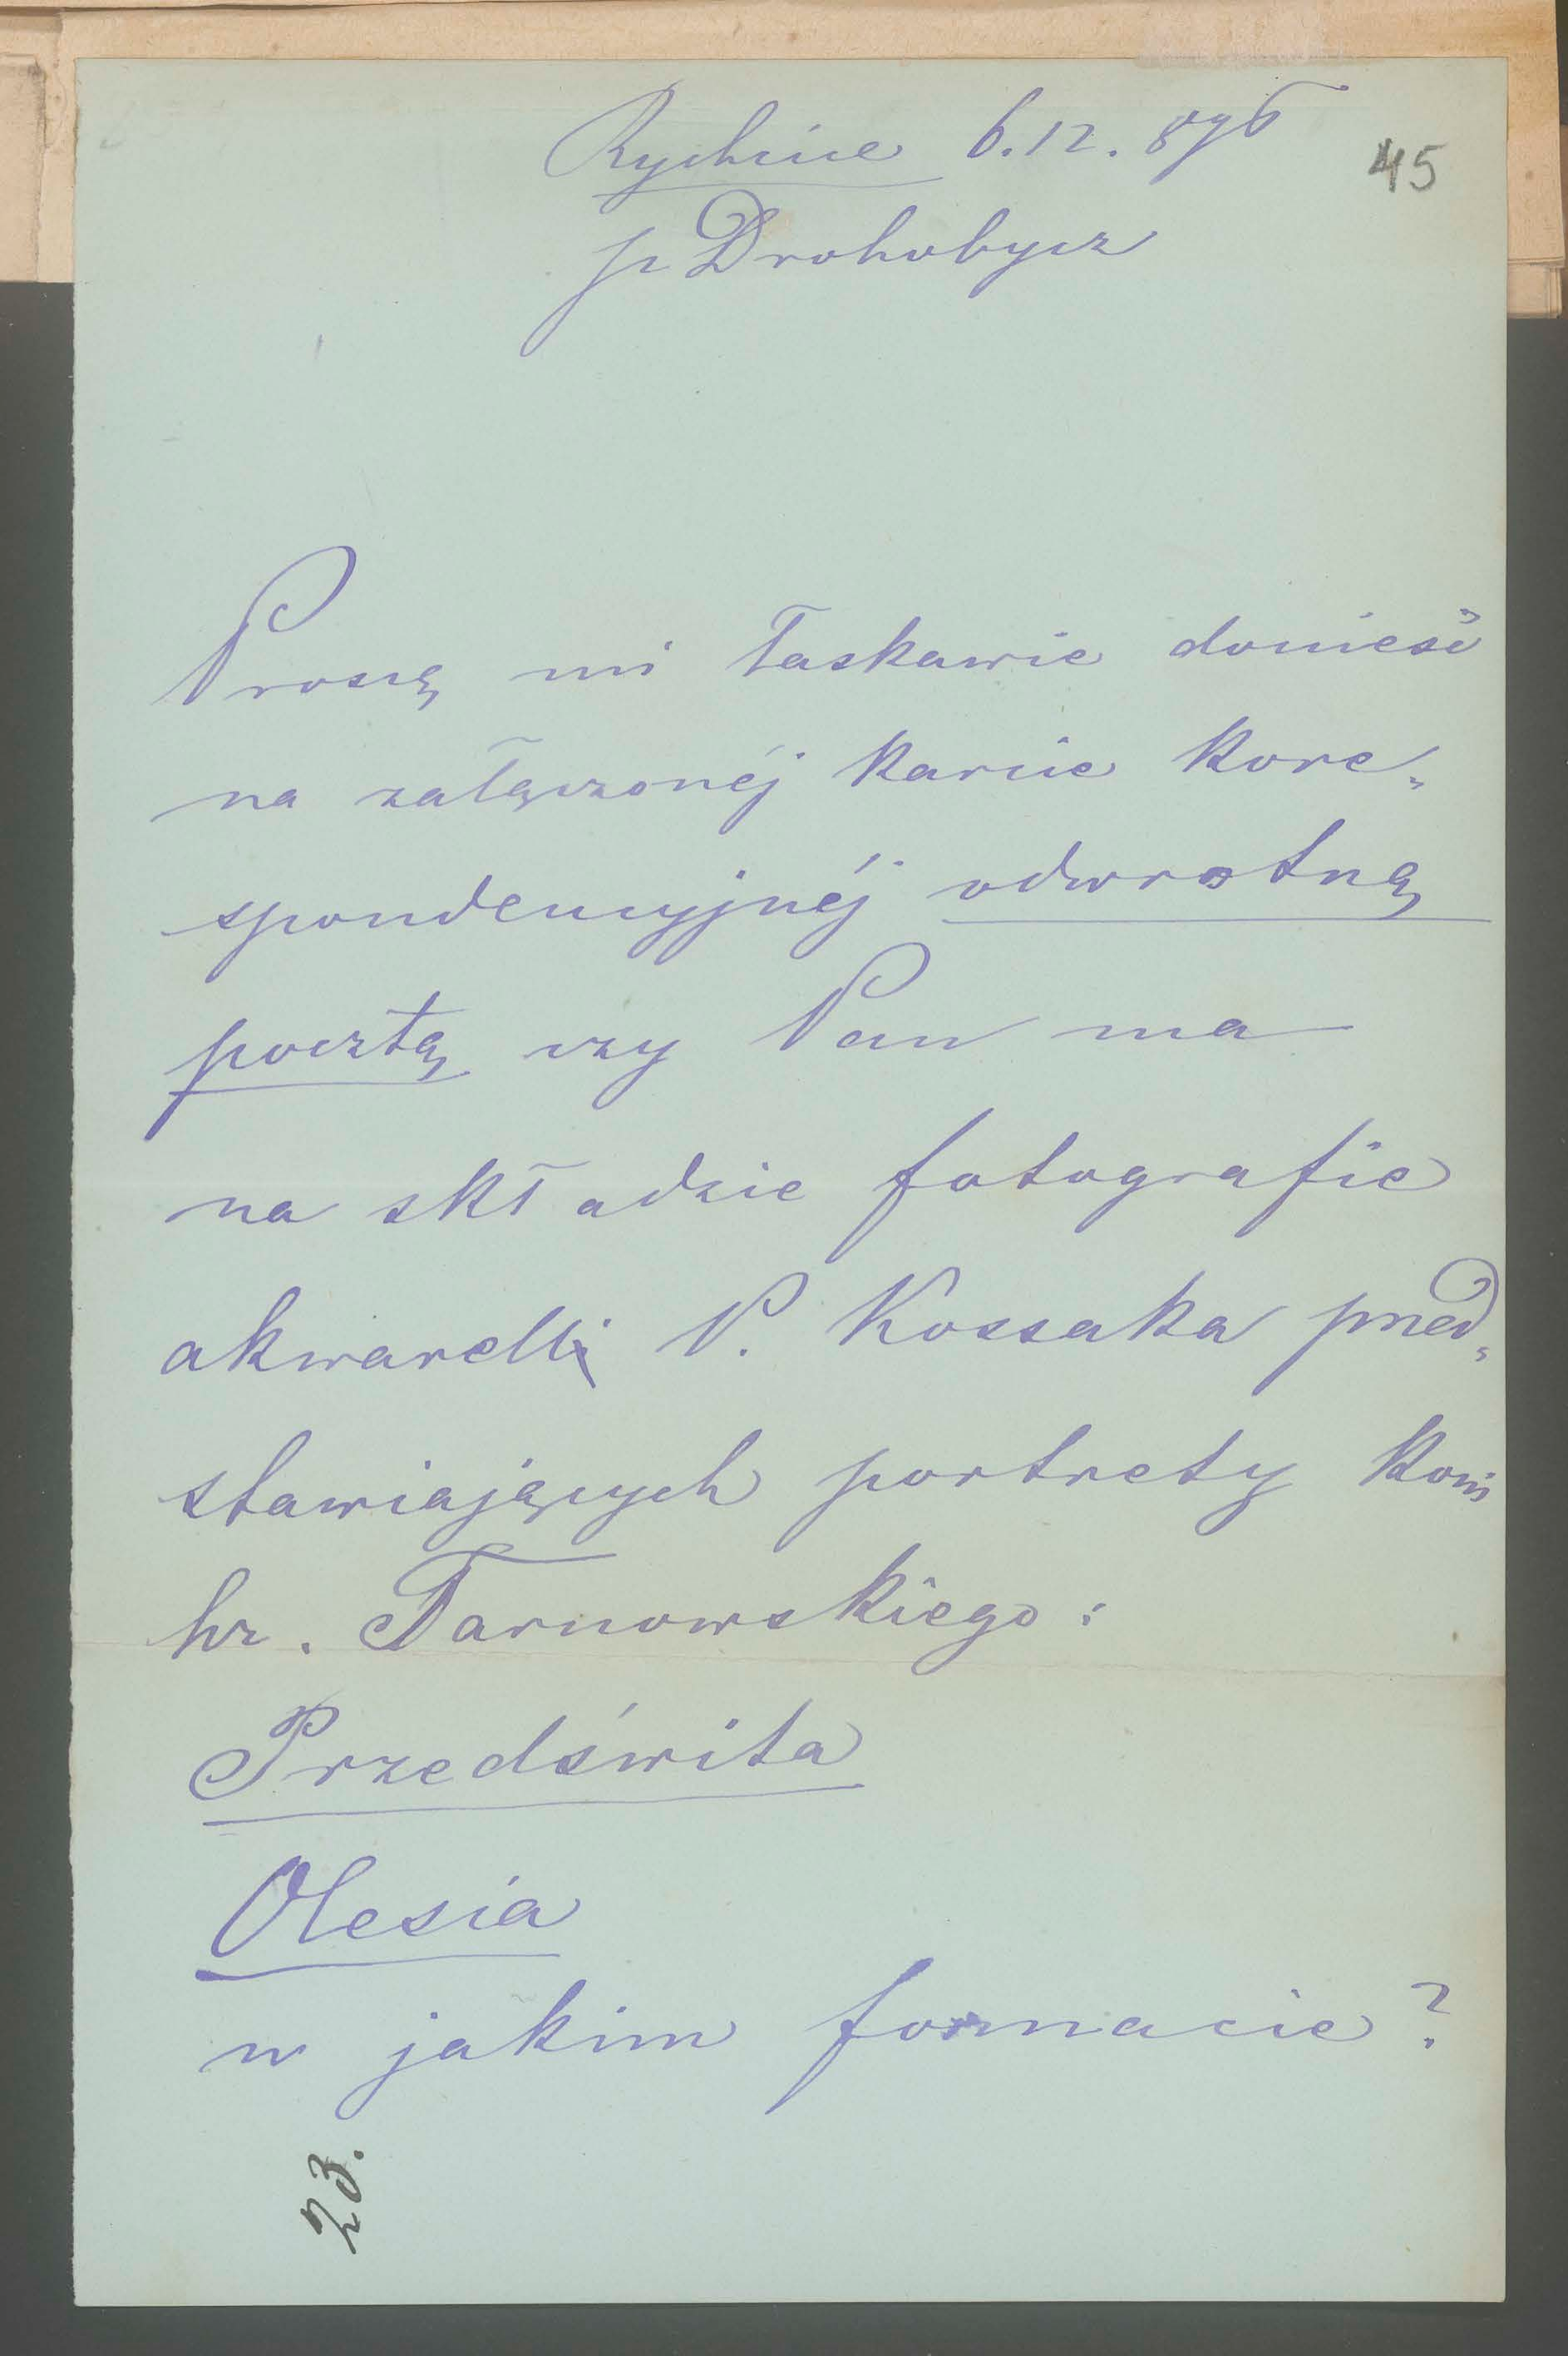 Rychcice 6.12.896
45
p Drohobycz
Proszę mi łaskawie donieść
na załączonéj karcie kore„
spondencyjnéj odwrotną
pocztą czy Pan ma
na składzie fotografie
akwarelli P. Kossaka przed„
stawiających portrety koni
hr. Tarnowskiego:
Przedświta
Olesia
w jakim formacie?
23.